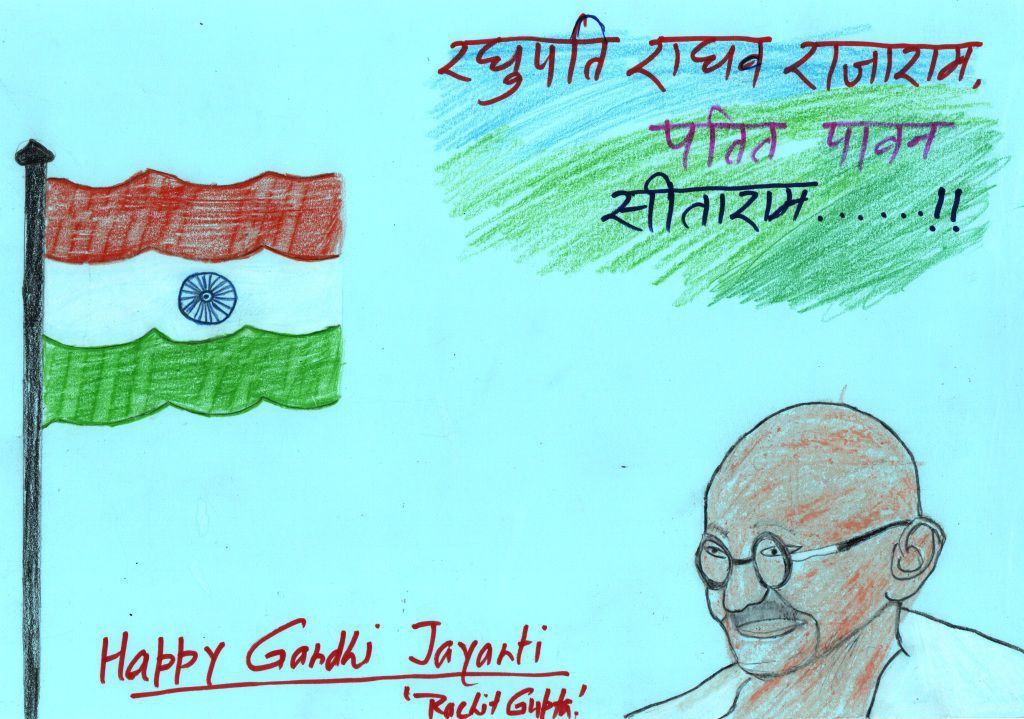 रघुपति राघव राजाराम,
पतित पावन
सीताराम.......!!
Happy Gandhi Jayanti
'Rachit Gupta.'